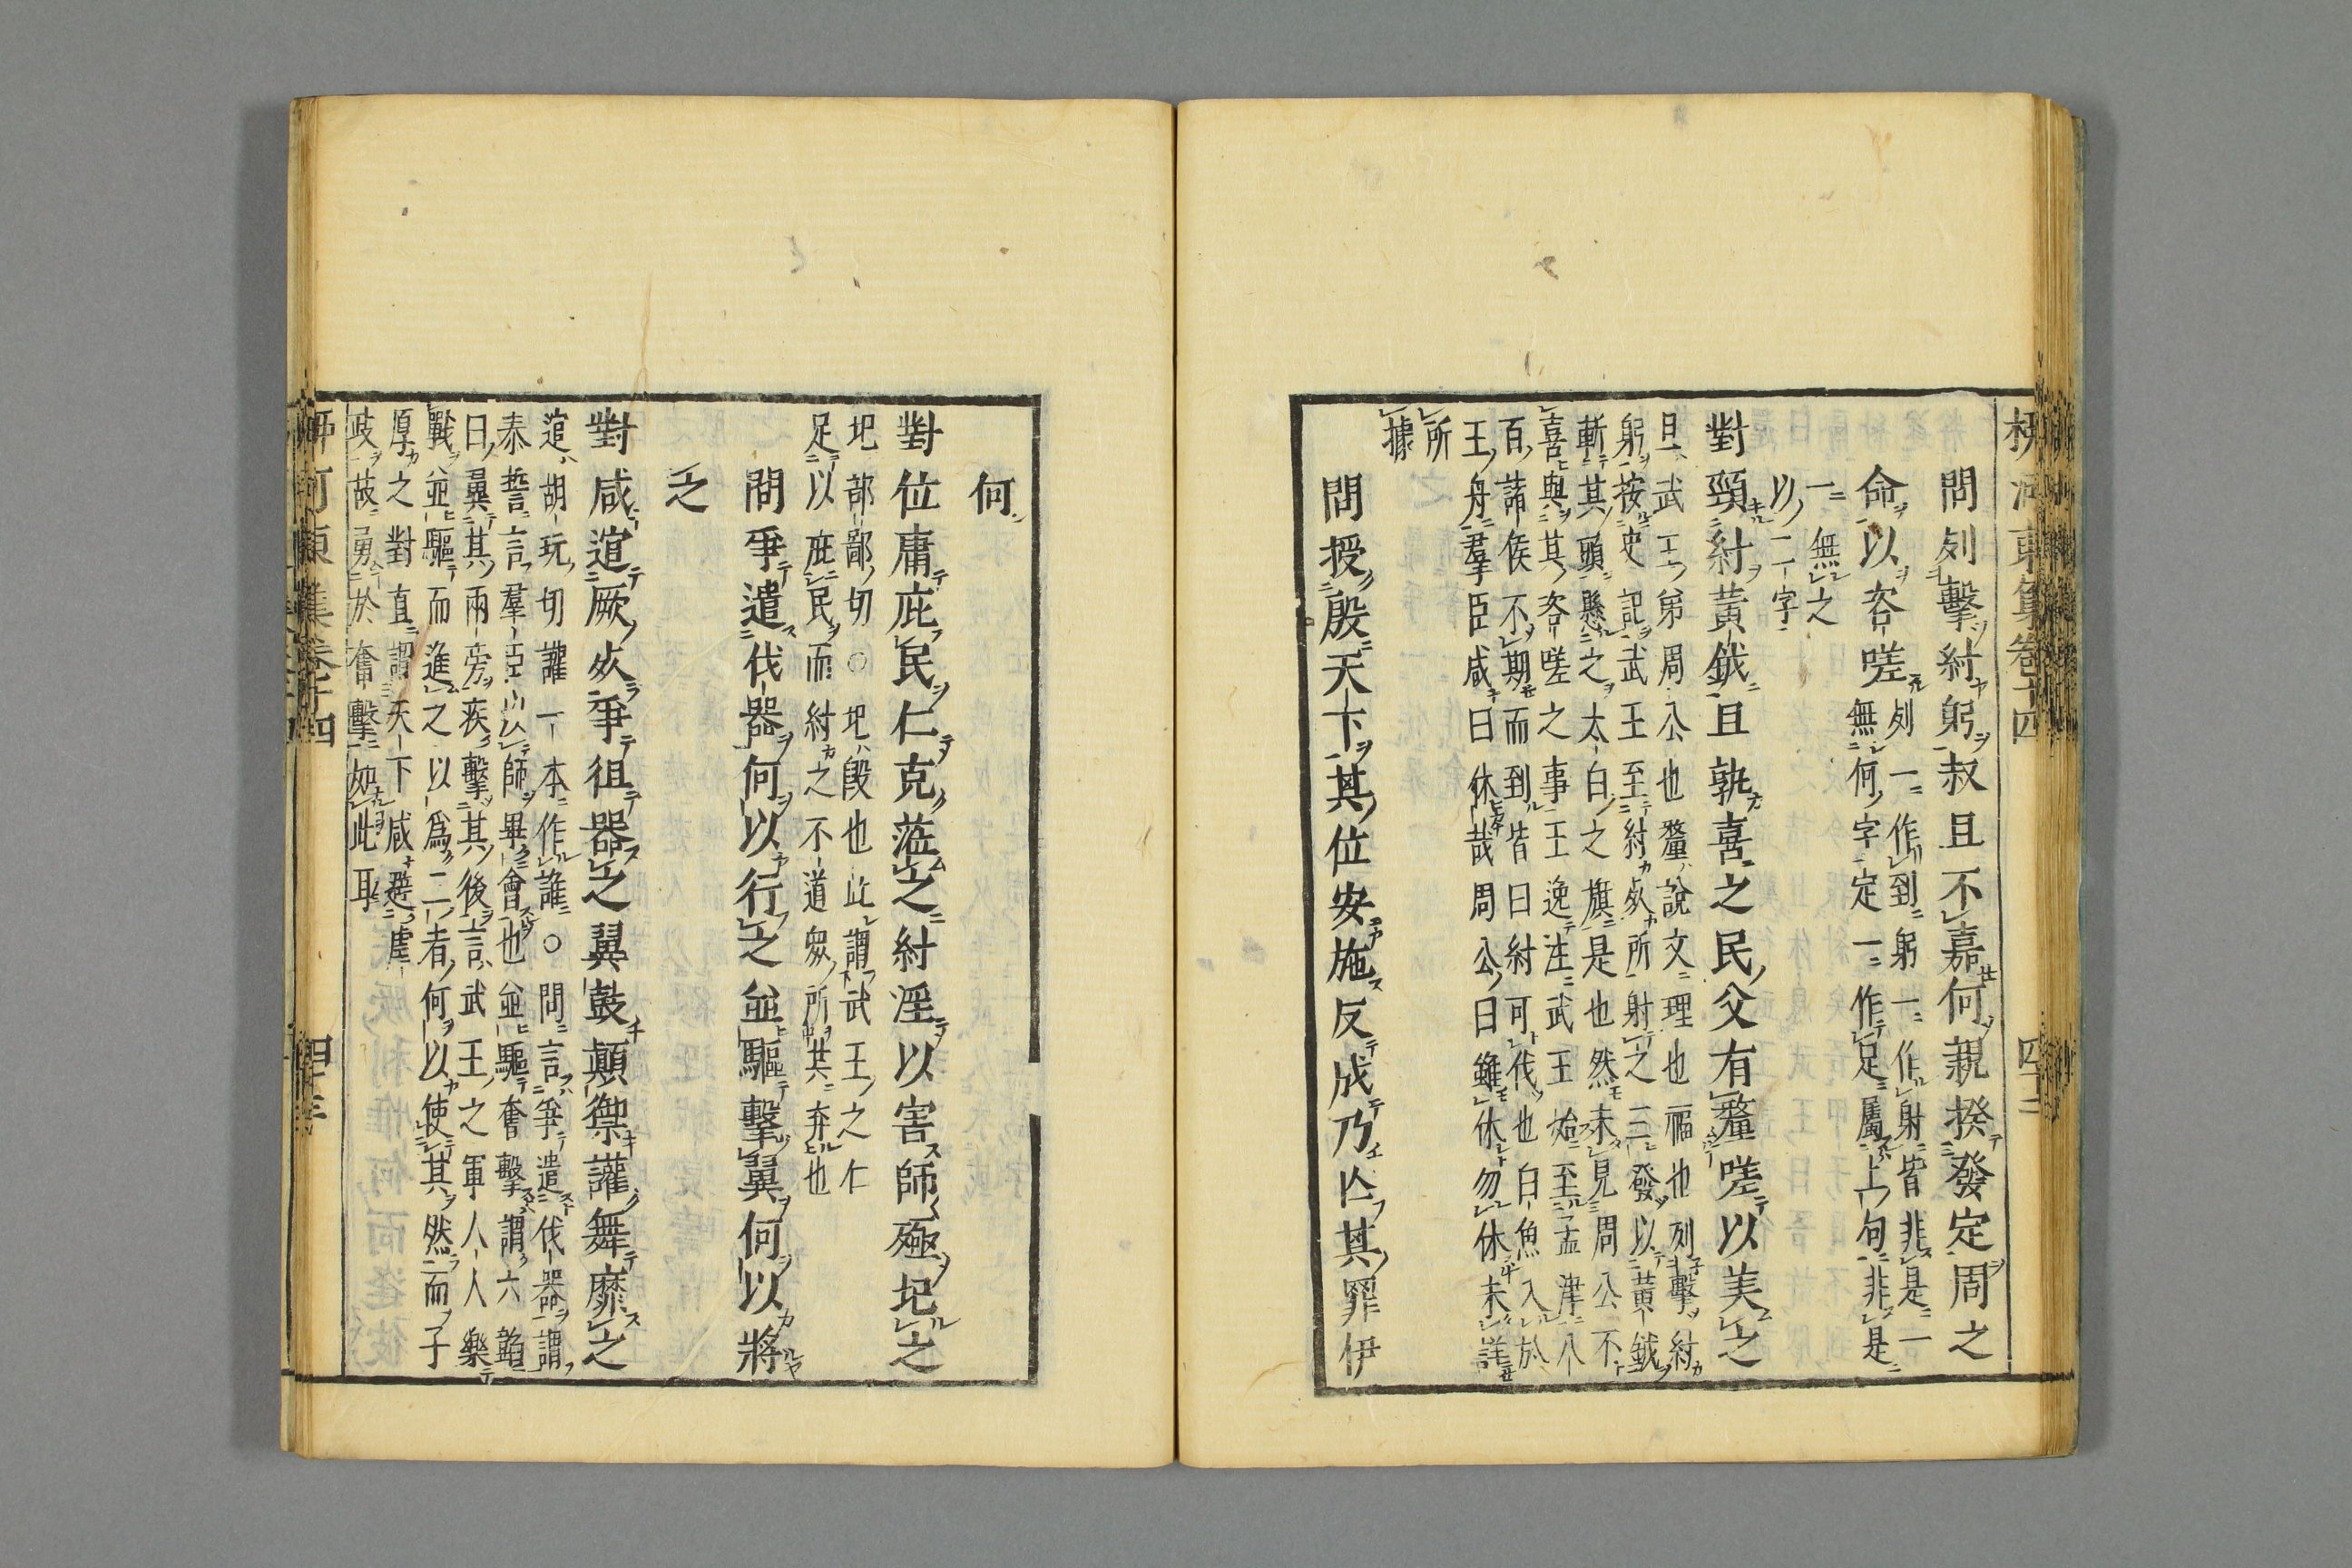 柳河東集卷十四
問列擊紂躬叔旦不嘉何親揆發定周之
命以咨嗟列一作到躬一作射皆非是一
無何字定一作足屬上句非是
一無之
以二字
對頸紂黃鉞旦孰喜之民父有釐嗟以美之
旦武王弟周公也釐說文理也福也列擊紂
躬按史記武王至紂處所射之三發以黃鉞
斬其頭懸之太白之旗是也然未見周公不
喜與其咨嗟之事王逸注武王始至孟津八
百諸侯不期而到皆曰紂可伐也白魚入於
王舟羣臣咸曰休哉周公曰雖休勿休未詳
所
據
問授殷天下其位安施反成乃亡其罪伊
何
對位庸庇民仁克蒞之紂淫以害師殛圮之
圮部鄙切○圮毀也此謂武王之仁
足以庇民而紂之不道衆所共弃也
問爭遣伐器何以行之並驅擊翼何以將
之
對咸逭厥死爭徂器之翼鼓顛禦讙舞靡之
逭胡玩切讙一本作誰○問言爭遣伐器謂
泰誓言羣臣以師畢會也並驅奮擊謂六韜
曰翼其兩旁疾擊其後言武王之軍人人樂
戰並驅而進之以爲二者何以使其然而子
厚之對直謂天下咸避虐
政故勇於奮擊如此耳
柳河東集卷十四
四十三